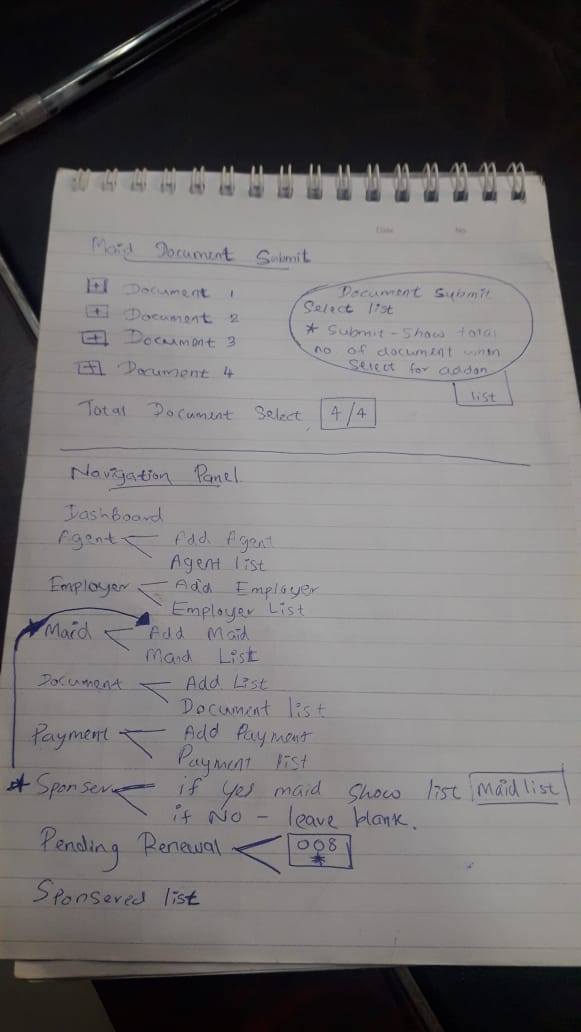 Date No
Maid Document Submit
+ Document 1
+ Document 2
+ Document 3
+ Document 4
Total Document Select 4/4
Document Submit
Select list
* Submit - Show total
no of document when
Select for addon
list
Navigation Panel
DashBoard
Agent Add Agent
Agent list
Employer Add Employer
Employer List
Maid Add Maid
Maid List
Document Add List
Document list
Payment Add Payment
Payment list
* Sponser if Yes maid show list Maid list
if NO - leave blank.
Pending Renewal 008
*
Sponsered list